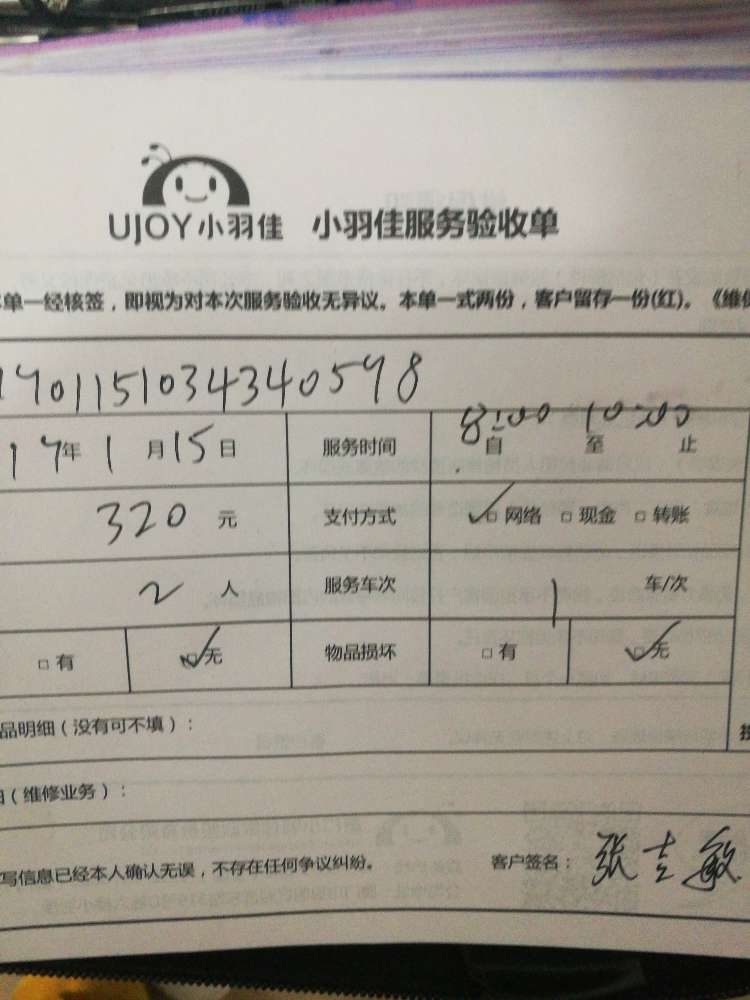 UJOY小羽佳 小羽佳服务验收单
单一经核签，即视为对本次服务验收无异议。本单一式两份，客户留存一份(红)。《维
1701151034340578
17年1月15日 服务时间 8:00 自 10:00 至 止
320元 支付方式 □网络 □现金 □转账
2人 服务车次 1 车/次
□有 □无 物品损坏 □有 □无
品明细（没有可不填）：
（维修业务）：
写信息已经本人确认无误，不存在任何争议纠纷。 客户签名：张吉敏